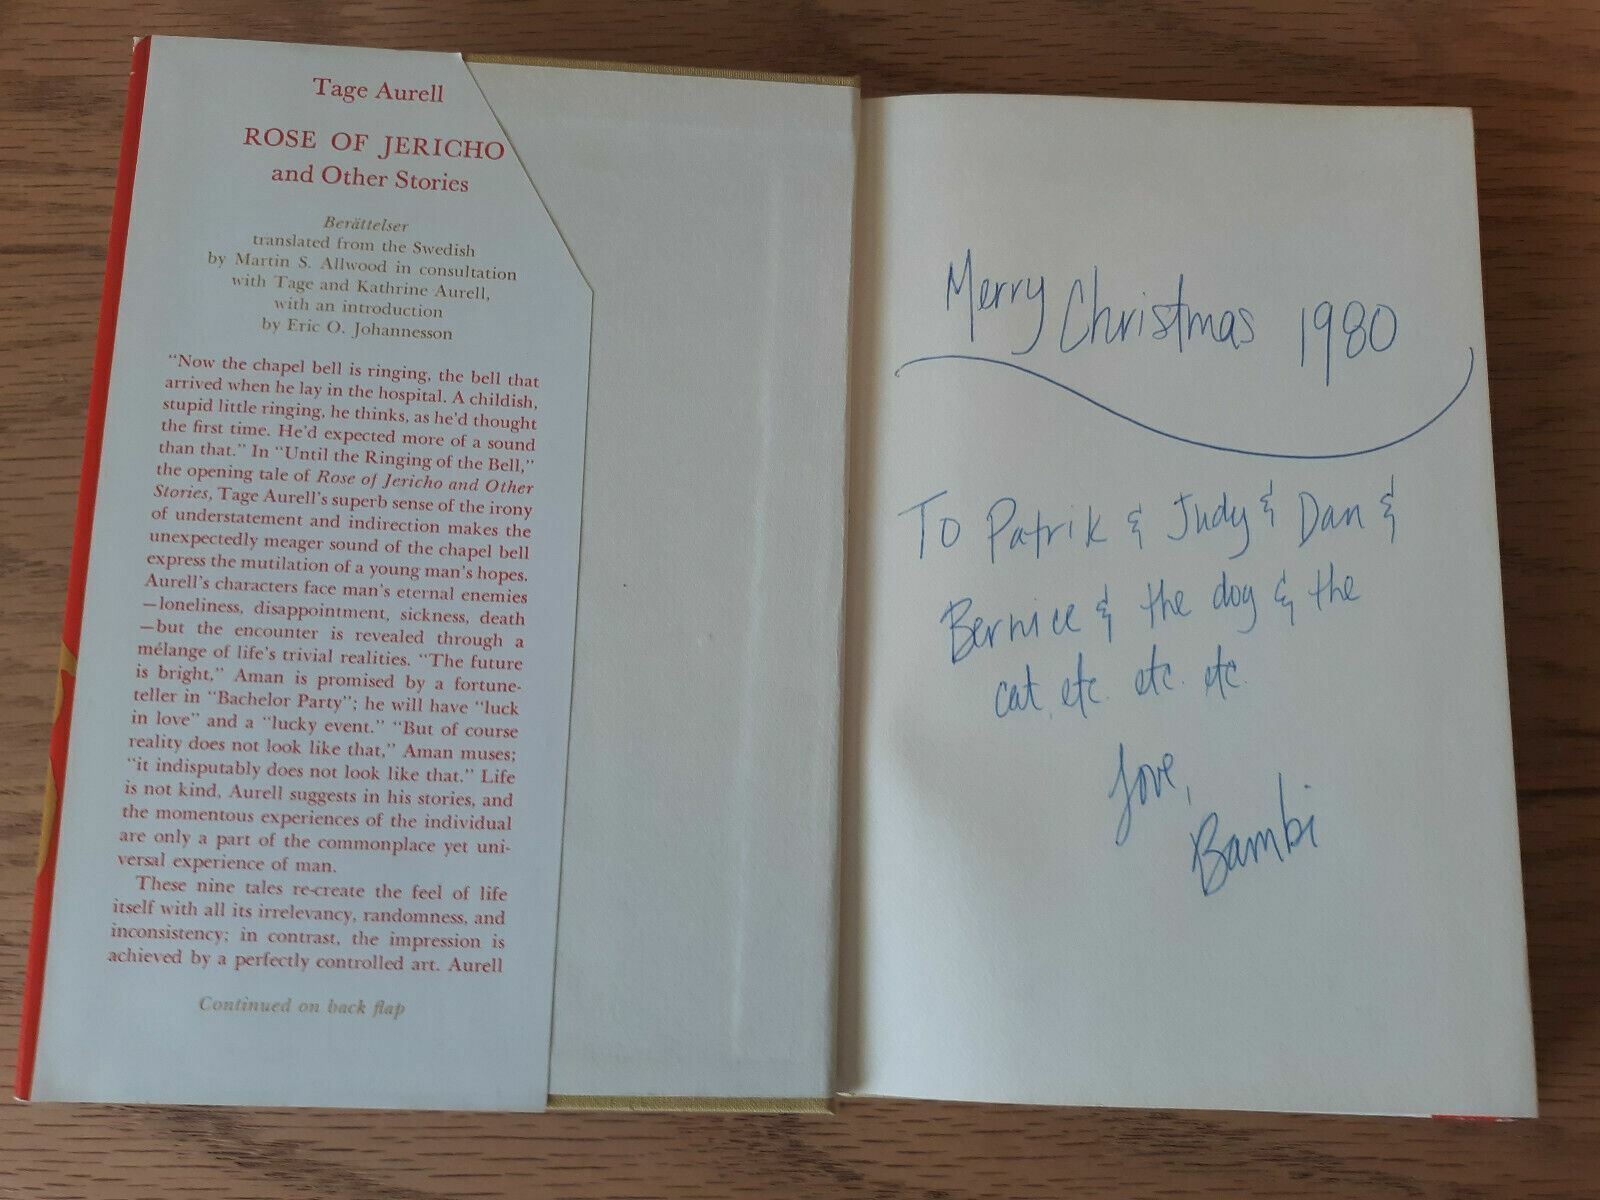 Tage Aurell
ROSE OF JERICHO
and Other Stories
Berättelser
translated from the Swedish
by Martin S. Allwood in consultation
with Tage and Kathrine Aurell,
with an introduction
by Eric O. Johannesson
"Now the chapel bell is ringing, the bell that
arrived when he lay in the hospital. A childish,
stupid little ringing, he thinks, as he'd thought
the first time. He'd expected more of a sound
than that." In "Until the Ringing of the Bell,"
the opening tale of Rose of Jericho and Other
Stories, Tage Aurell's superb sense of the irony
of understatement and indirection makes the
unexpectedly meager sound of the chapel bell
express the mutilation of a young man's hopes.
Aurell's characters face man's eternal enemies
—loneliness, disappointment, sickness, death
—but the encounter is revealed through a
mélange of life's trivial realities. "The future
is bright," Aman is promised by a fortune-
teller in "Bachelor Party"; he will have "luck
in love" and a "lucky event." "But of course
reality does not look like that," Aman muses;
"it indisputably does not look like that." Life
is not kind, Aurell suggests in his stories, and
the momentous experiences of the individual
are only a part of the commonplace yet uni-
versal experience of man.
These nine tales re-create the feel of life
itself with all its irrelevancy, randomness, and
inconsistency; in contrast, the impression is
achieved by a perfectly controlled art. Aurell
Continued on back flap
Merry Christmas 1980
To Patrik & Judy & Dan &
Bernice & the dog & the
cat. etc. etc. etc.
Love,
Bambi